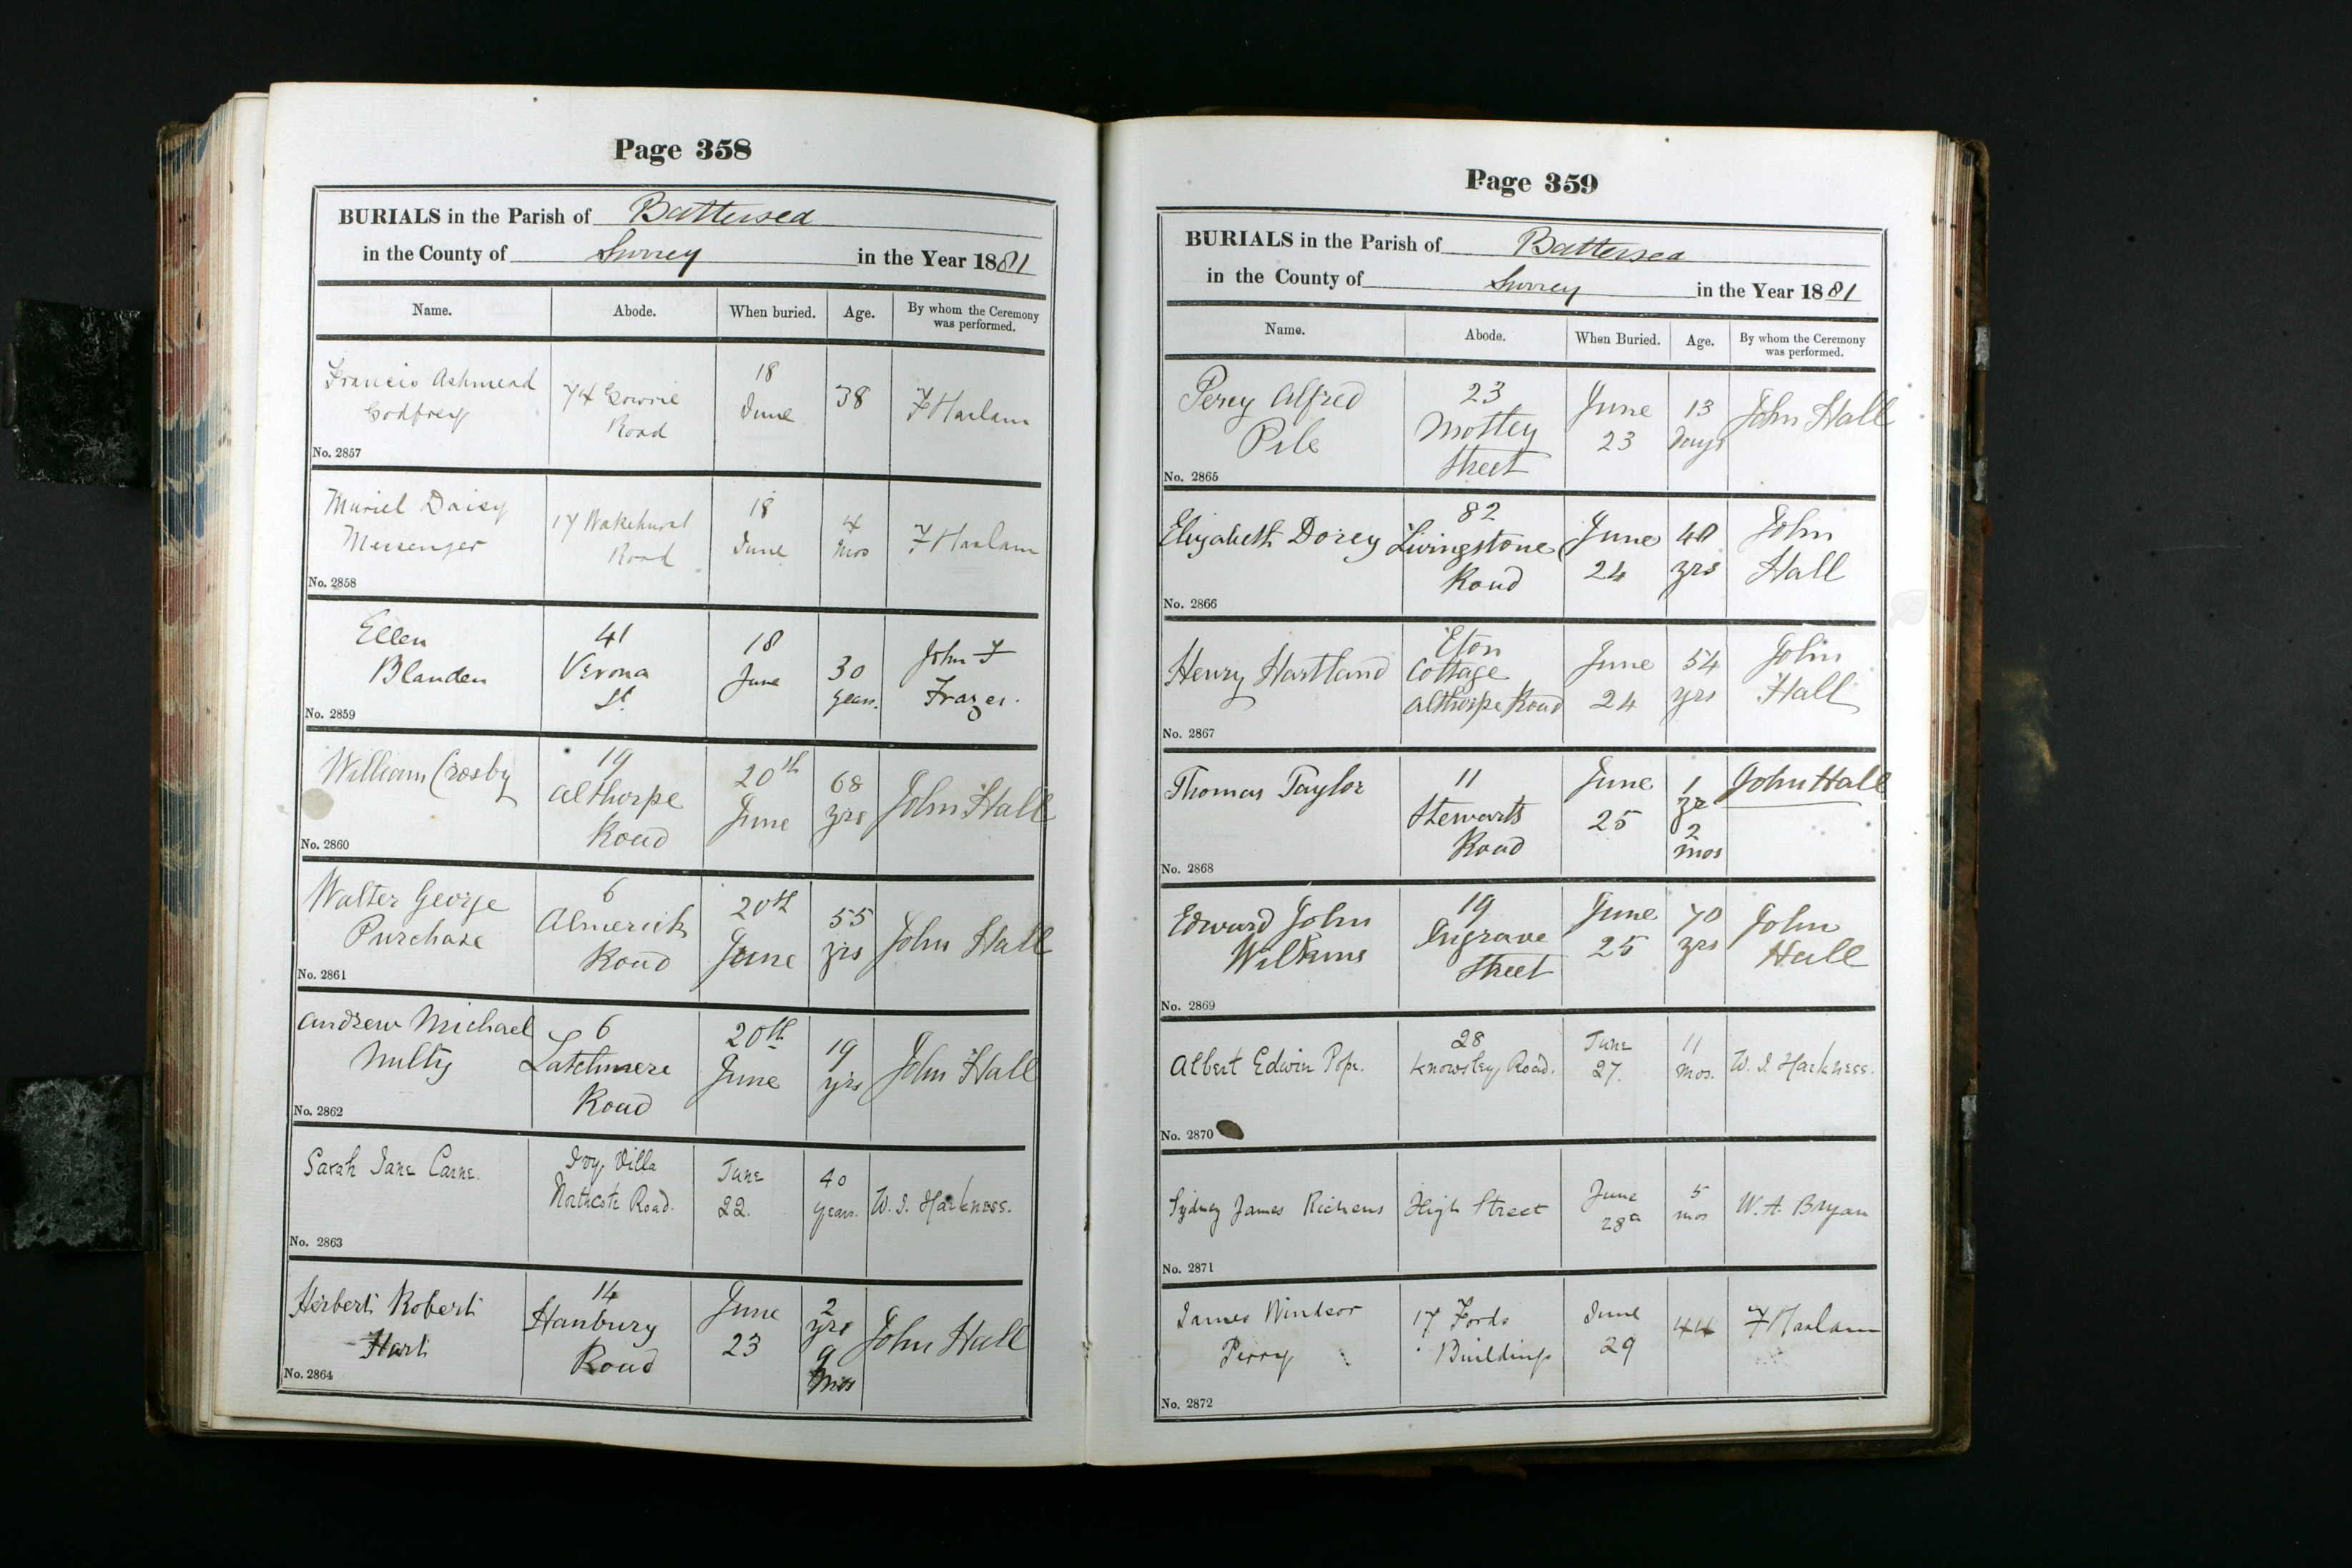 Page 358
BURIALS in the Parish of Battersea
in the County of Surrey in the Year 1881
Name. Abode. When buried. Age. By whom the Ceremony was performed.
Francis Ashmead 74 Gowrie 18 38 F Haslam
Godfrey Road June
No. 2857
Muriel Daisy 17 Wakehurst 18 4 F Haslam
Messenger Road June mos
No. 2858
Ellen 41 18 30 John F
Blanden Verona June years. Frazer.
St
No. 2859
William Crosby 19 20th 68 John Hall
Althorpe June yrs
Road
No. 2860
Walter George 6 20th 55 John Hall
Purchase Almerick June yrs
Road
No. 2861
Andrew Michael 6 20th 19 John Hall
Nulty Latchmere June yrs
Road
No. 2862
Sarah Jane Carne. Ivy Villa June 40 W. I. Harkness.
Northcote Road. 22. years.
No. 2863
Herbert Robert 14 June 2 John Hall
Hart Hanbury 23 yrs
Road 9
mos
No. 2864
Page 359
BURIALS in the Parish of Battersea
in the County of Surrey in the Year 1881
Name. Abode. When Buried. Age. By whom the Ceremony was performed.
Percy Alfred 23 June 13 John Hall
Pile Motley 23 days
Street
No. 2865
Elizabeth Dorey 82 June 40 John
Livingstone 24 yrs Hall
Road
No. 2866
Henry Hartland Eton June 54 John
Cottage 24 yrs Hall
Althorpe Road
No. 2867
Thomas Taylor 11 June 1 John Hall
Stewarts 25 yr
Road 2
mos
No. 2868
Edward John 19 June 70 John
Wilkins Ingrave 25 yrs Hall
Street
No. 2869
Albert Edwin Pope. 28 June 11 W. I. Harkness.
Knowsley Road. 27. mos.
No. 2870
Sydney James Richens High Street June 5 W. A. Bryan
28 mos
No. 2871
James Windsor 17 Fords June 44 F Haslam
Perry Buildings 29
No. 2872